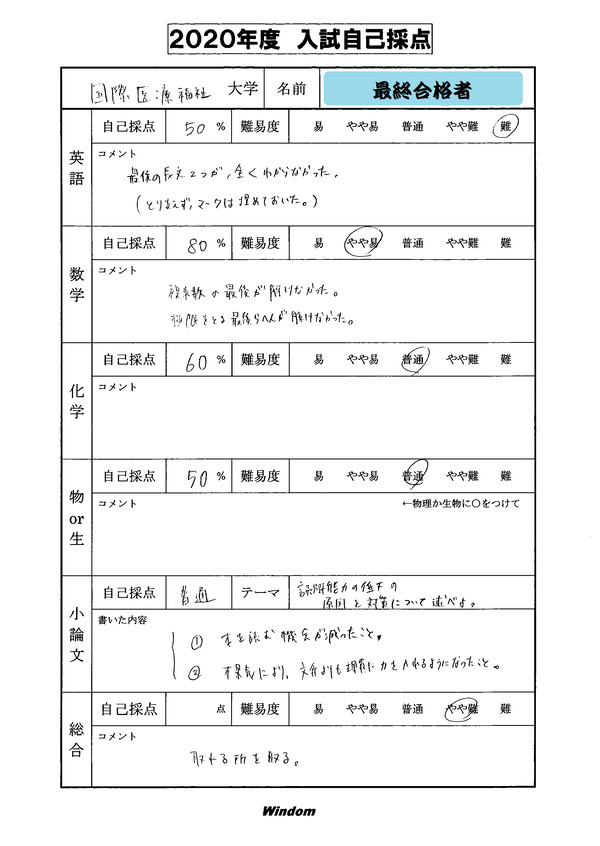 2020年度 入試自己採点
国際医療福祉 大学 名前 最終合格者
英語 自己採点 50 % 難易度 易 やや易 普通 やや難 難
コメント
最後の長文2つが、全くわからなかった。
(とりあえず、マークは埋めておいた。)
数学 自己採点 80 % 難易度 易 やや易 普通 やや難 難
コメント
複素数の最後が解けなかった。
極限をとる最後らへんが解けなかった。
化学 自己採点 60 % 難易度 易 やや易 普通 やや難 難
コメント
物or生 自己採点 50 % 難易度 易 やや易 普通 やや難 難
コメント ←物理か生物に○をつけて
小論文 自己採点 普通 テーマ 読解能力の低下の
原因と対策について述べよ。
書いた内容
① 本を読む機会が減ったこと。
② 不景気により、文系よりも理系に力を入れるようになったこと。
総合 自己採点 点 難易度 易 やや易 普通 やや難 難
コメント
取れる所を取る。
Windom